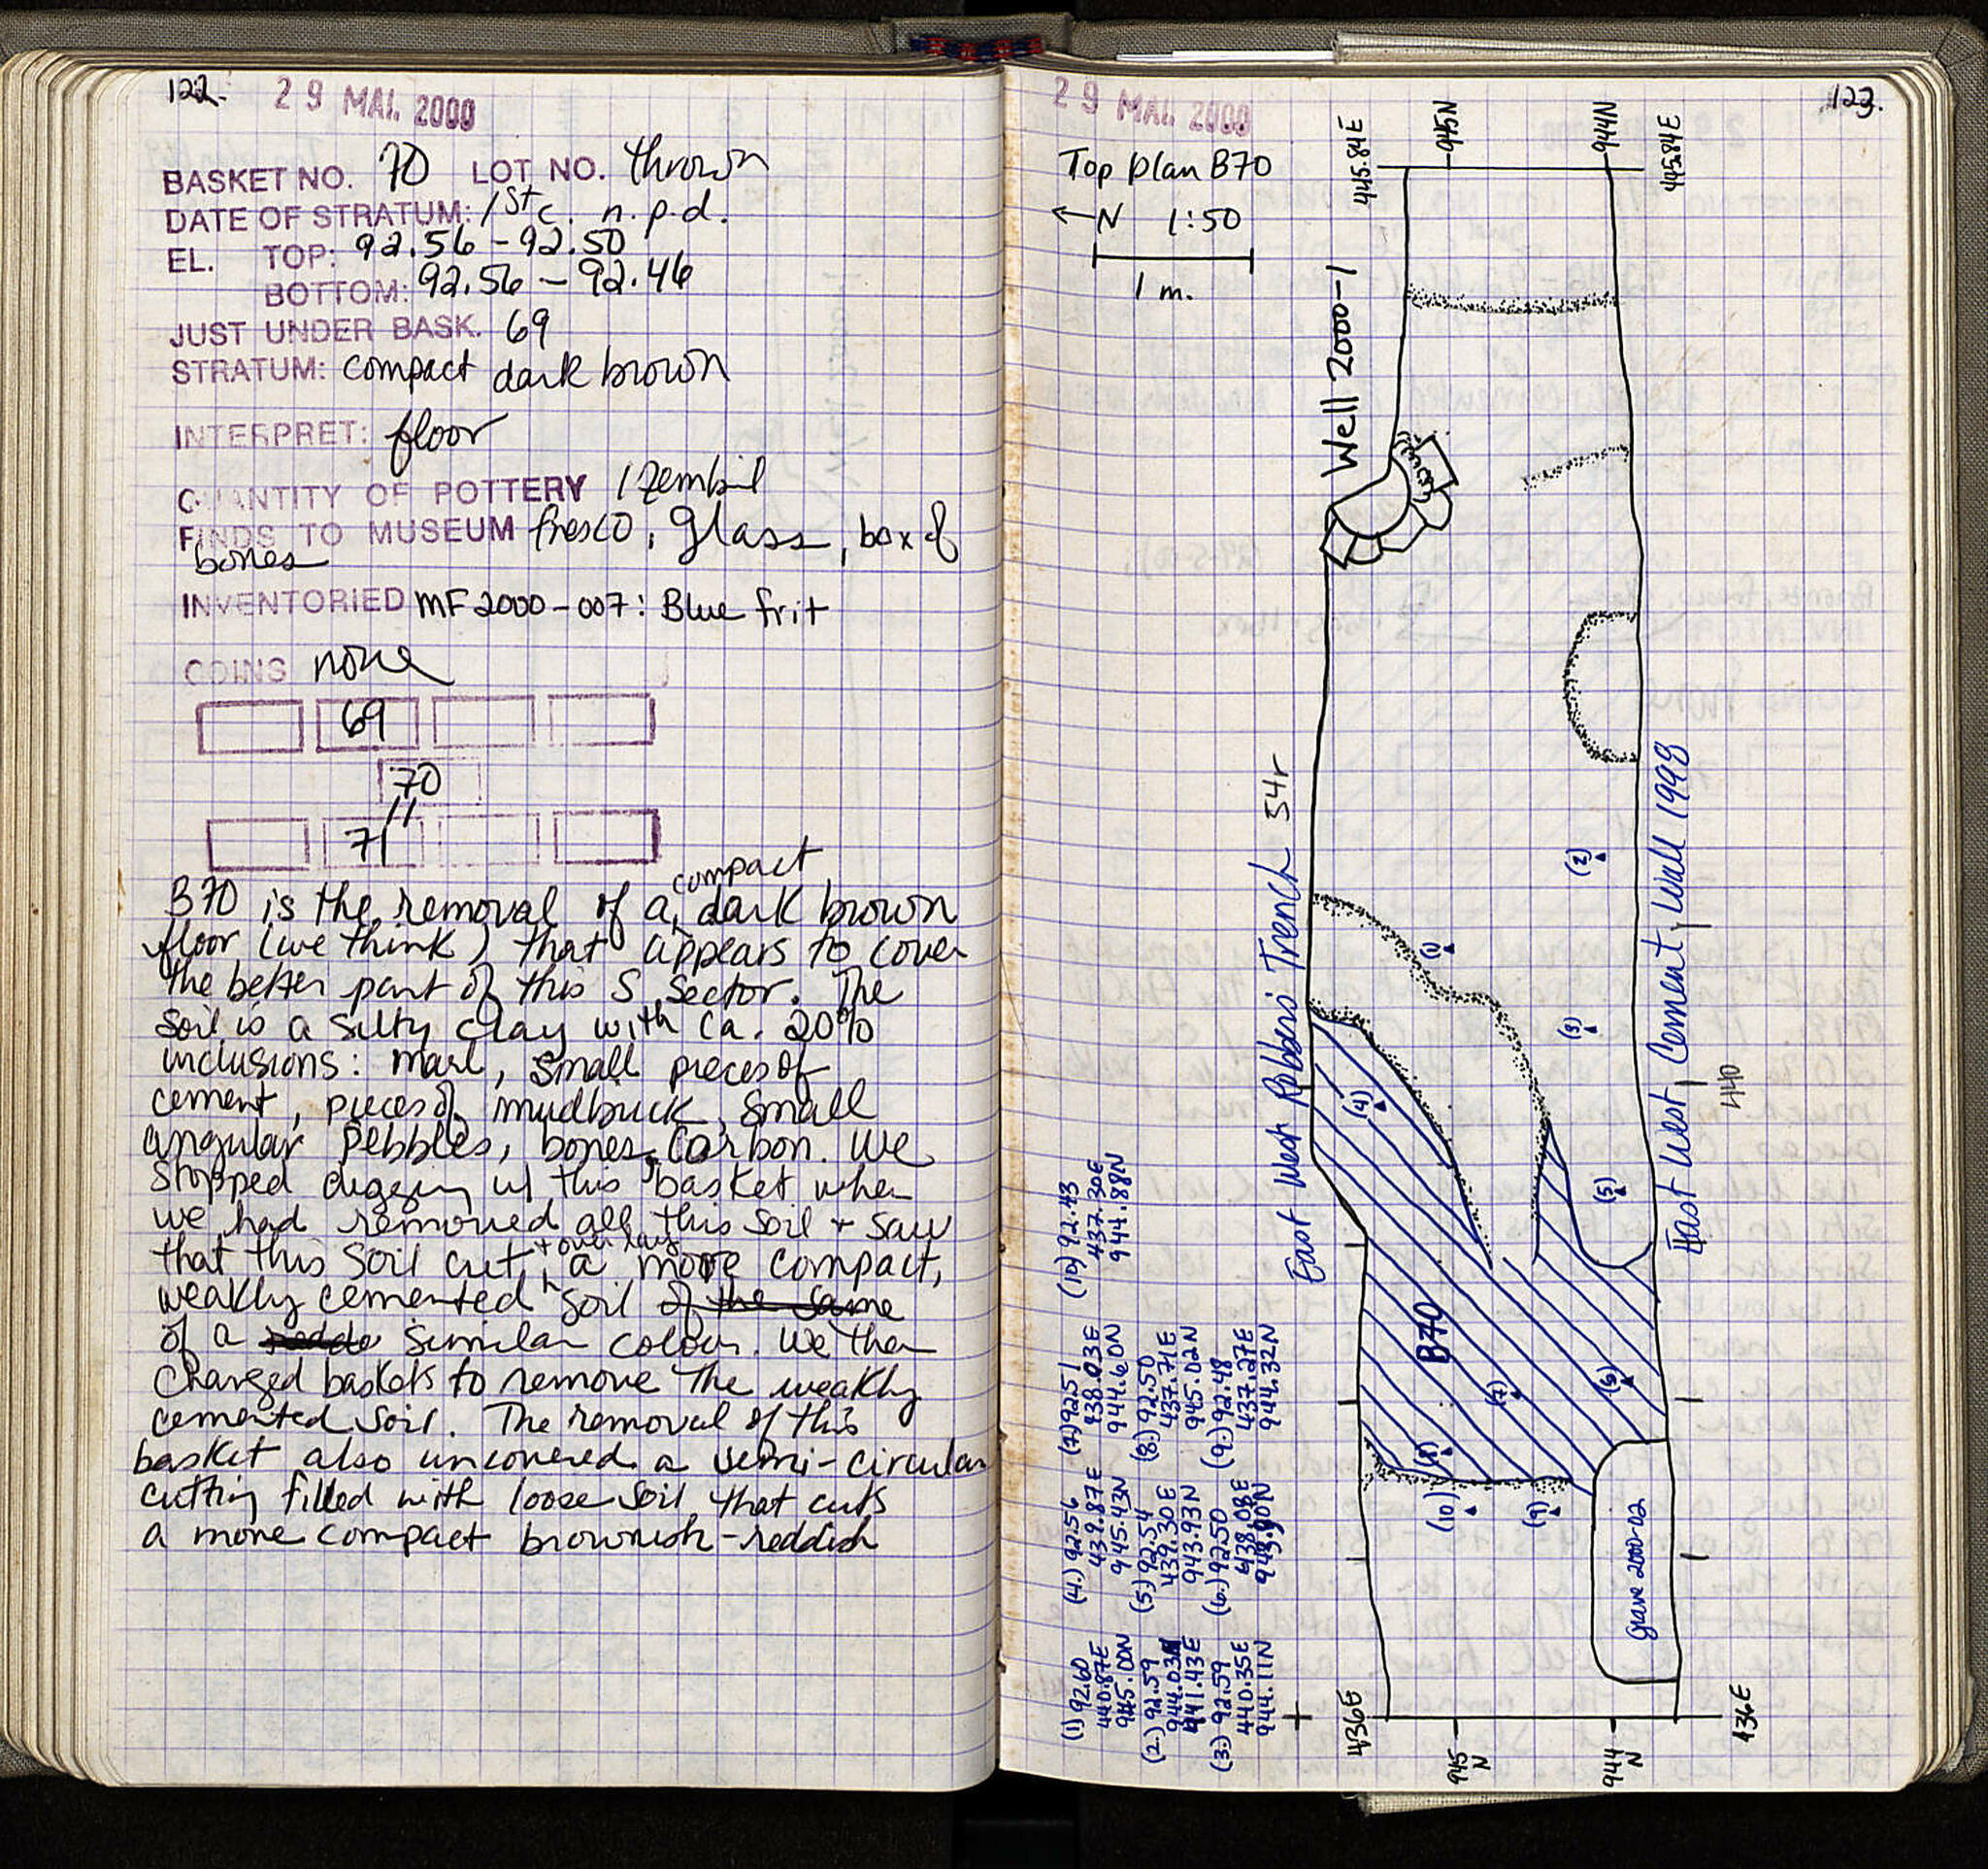 122.
29 MAI. 2000
BASKET NO. 70 LOT NO. thrown
DATE OF STRATUM: 1st c. n.p.d.
EL. TOP: 92.56 - 92.50
BOTTOM: 92.56 - 92.46
JUST UNDER BASK. 69
STRATUM: compact dark brown
INTERPRET: floor
QUANTITY OF POTTERY 1 zembil
FINDS TO MUSEUM fresco, glass, box of
bones
INVENTORIED MF2000-007: Blue frit
COINS none
69
70
//
71
B70 is the removal of a compact dark brown
floor (we think) that appears to cover
the better part of this S. Sector. The
soil is a silty clay with ca. 20%
inclusions: marl, small pieces of
cement, pieces of mudbrick, small
angular pebbles, bones, carbon. We
stopped digging w/ this basket when
we had removed all this soil + saw
that this soil cut + overlay a more compact,
weakly cemented soil of the same
of a similar colour. We then
changed baskets to remove the weakly
cemented soil. The removal of this
basket also uncovered a semi-circular
cutting filled with loose soil that cuts
a more compact brownish-reddish
29 MAI. 2000
123.
Top Plan B70
←N 1:50
1 m.
445.84E
945N
944N
445.84E
Well 2000-1
East West Robbers' Trench 54r
East West Cement Wall 1998
440
(1)
(2)
(3)
(4)
(5)
(6)
(7)
(8)
(9)
(10)
B70
Grave 2000-02
436E
945 N
944 N
436E
(1) 92.60
440.87E
945.00N
(2.) 92.59
944.03N
441.43E
(3.) 92.59
440.35E
944.11N
(4.) 92.56
439.87E
945.43N
(5.) 92.54
439.30E
943.93N
(6.) 92.50
438.08E
943.90N
(7.) 92.51
438.03E
944.60N
(8.) 92.50
437.71E
945.02N
(9.) 92.48
437.27E
944.32N
(10) 92.43
437.30E
944.88N